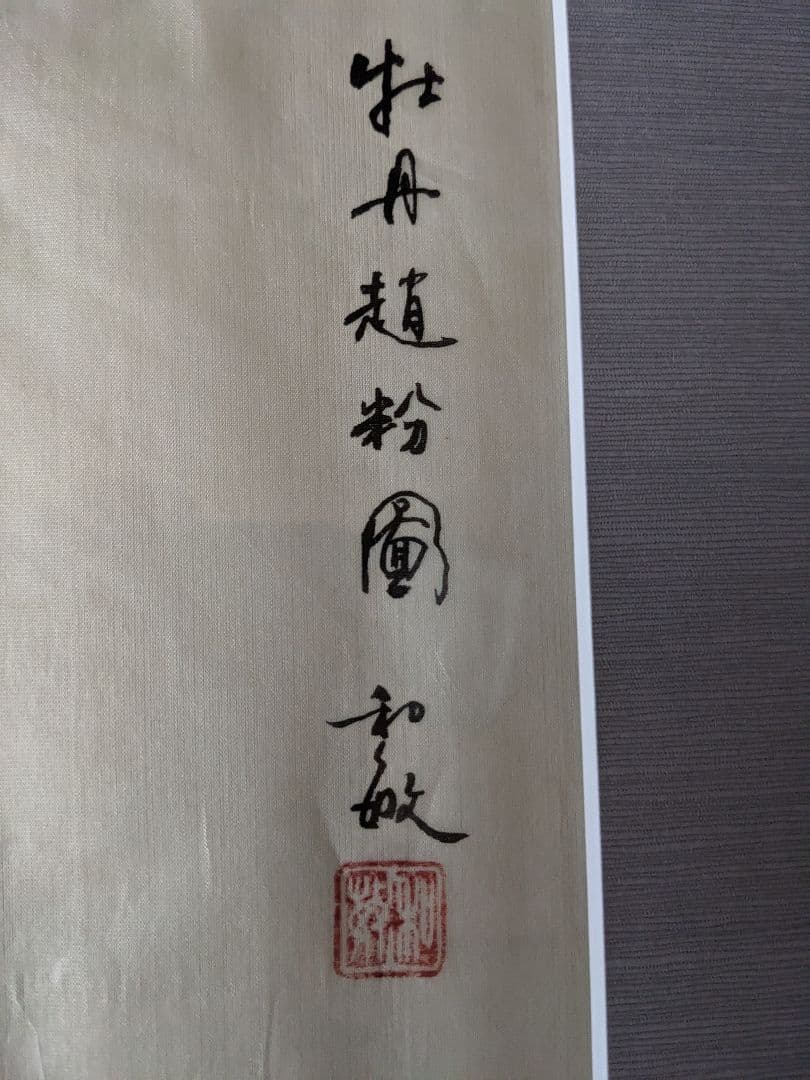 牡丹趙粉圖 和敏